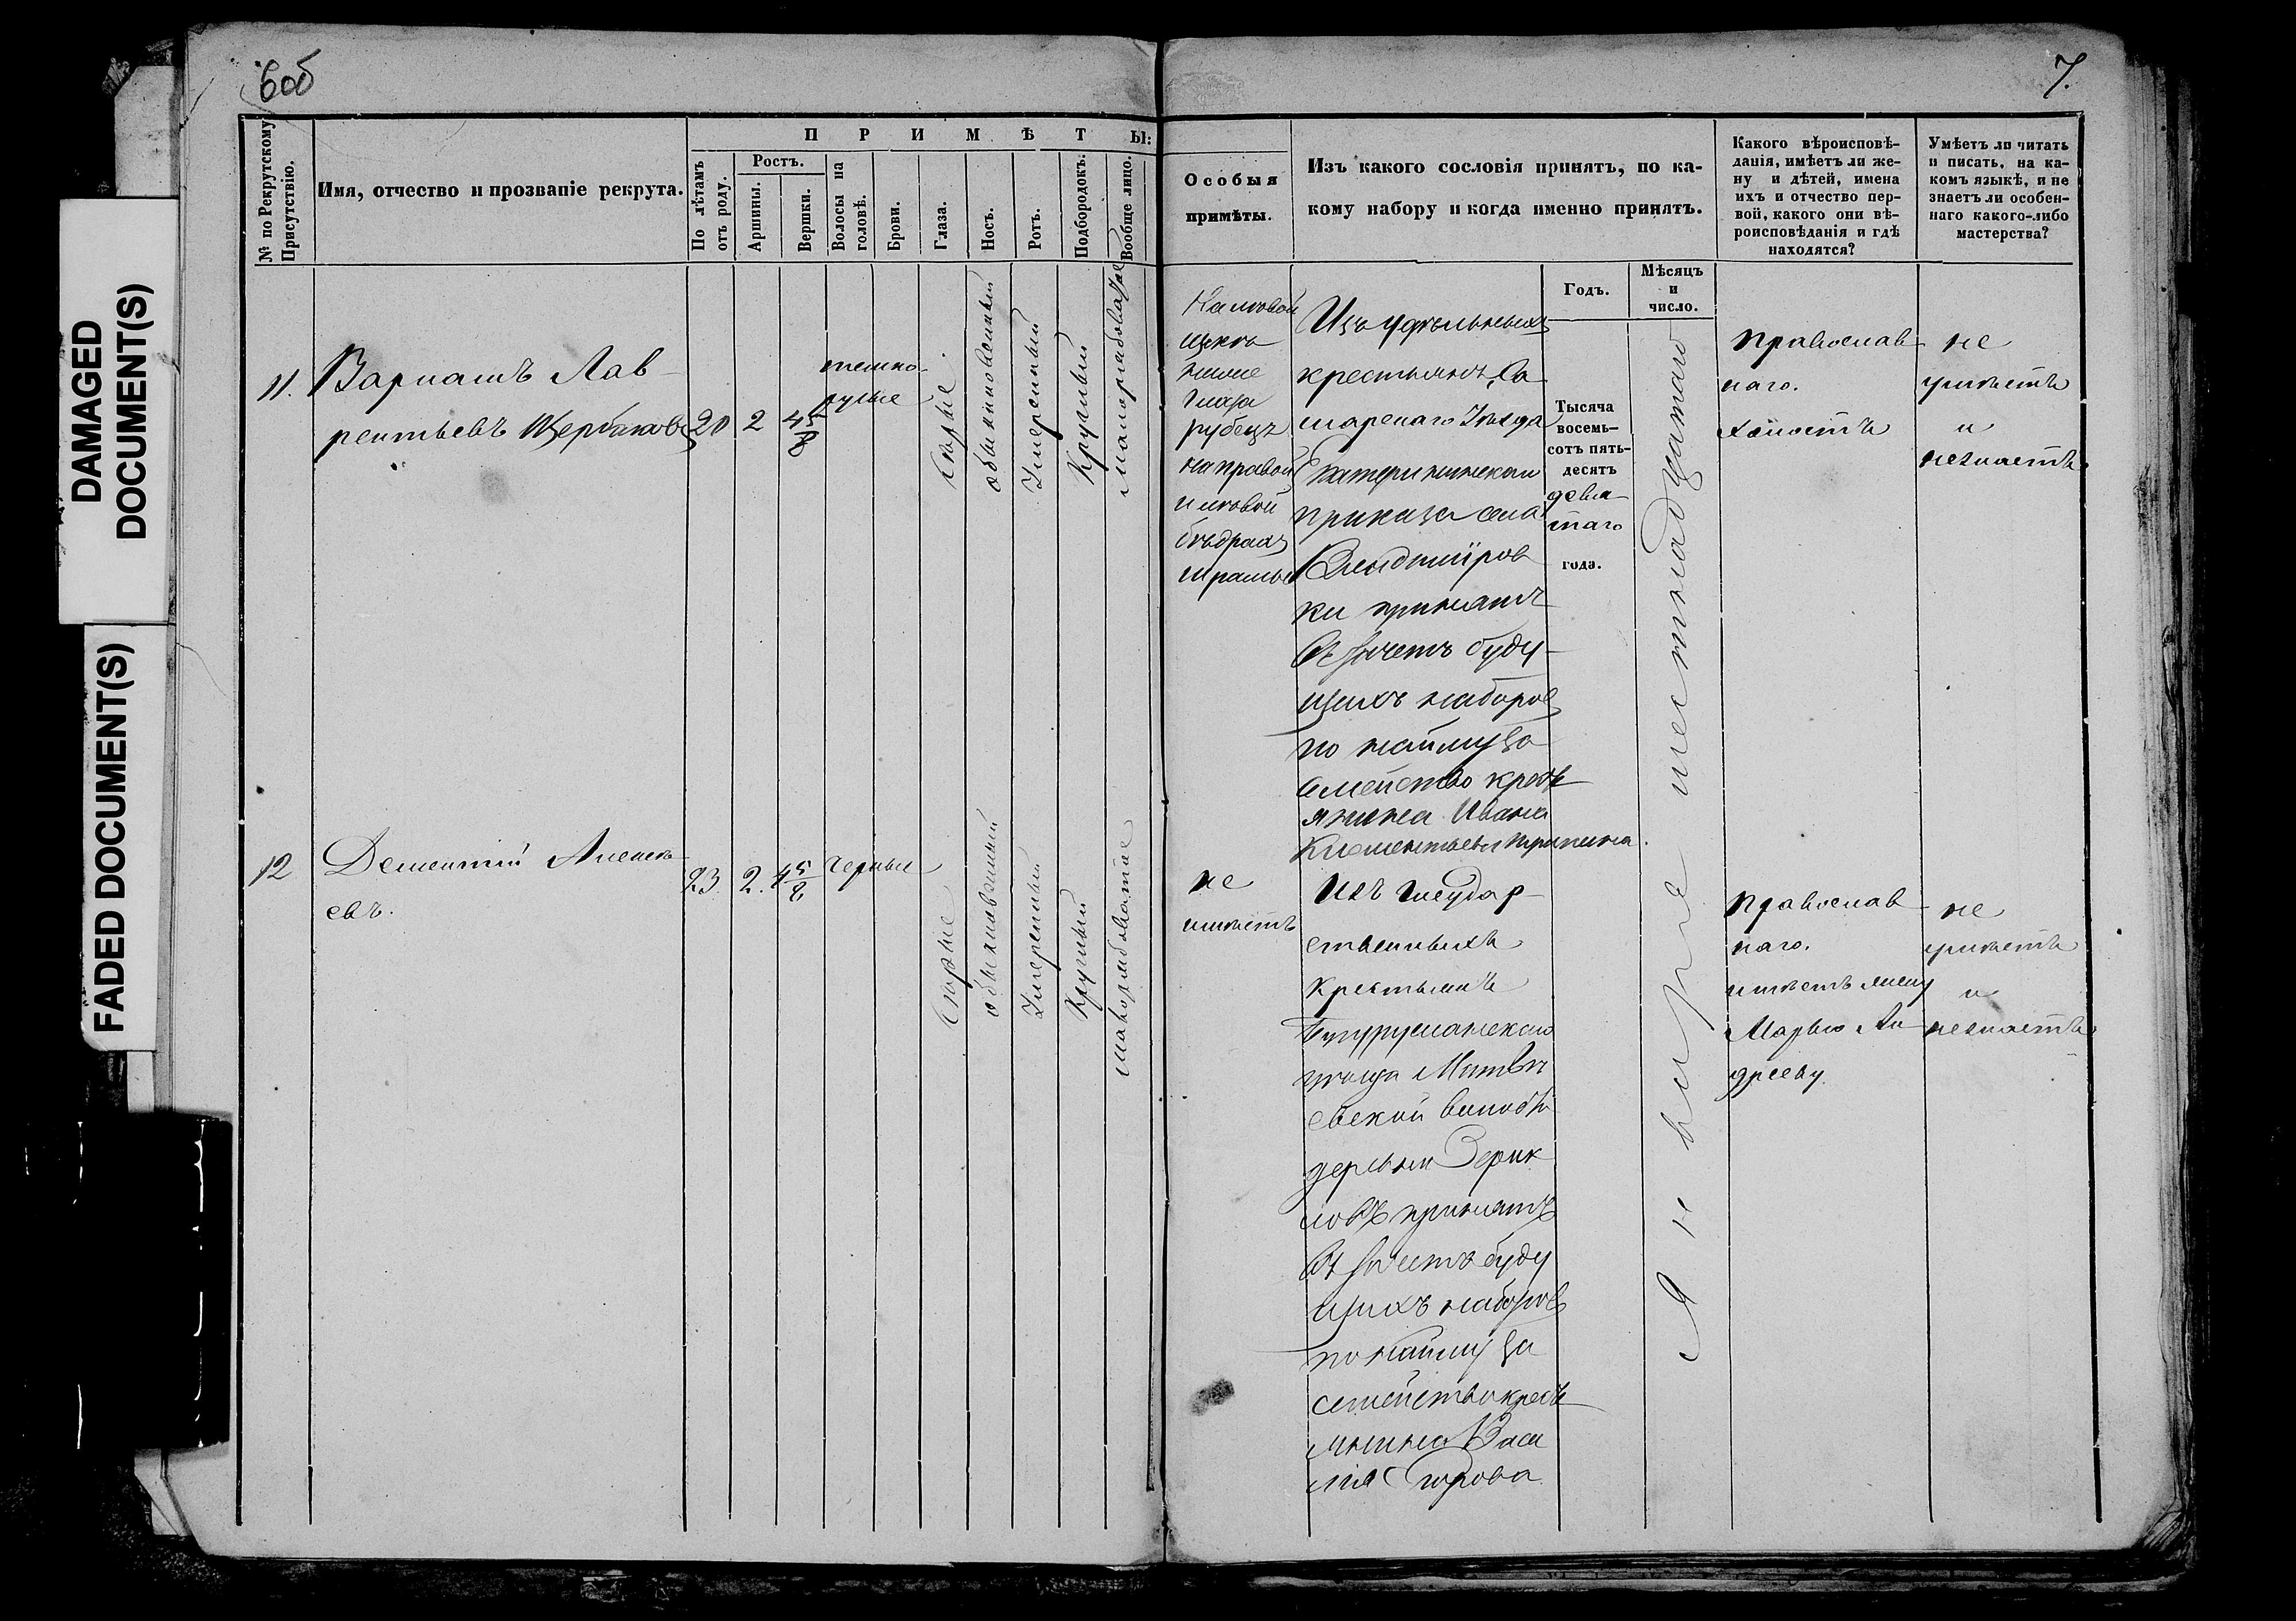 DAMAGED
DOCUMENT(S)
FADED DOCUMENT(S)
6об
№ по Рекрутскому
Присутствію.
Имя, отчество и прозваніе рекрута.
П Р И М Ѣ Т Ы:
По лѣтамъ
отъ роду.
Ростъ.
Аршины.
Вершки.
Волосы на
головѣ.
Брови.
Глаза.
Носъ.
Ротъ.
Подбородокъ.
Вообще лицо.
11.
Варламъ Лав-
рентьевъ Щербаковъ
20
2
4 5/8
темно-
русые
карые
обыкновенный
Умеренный
Круглый
12
Дементій Алексе-
евъ.
23.
2.
4 5/8
черные
карые
обыкновенный
Умеренный
Круглый
7.
Особыя
примѣты.
Изъ какого сословія принятъ, по ка-
кому набору и когда именно принятъ.
Какого вѣроисповѣ-
данія, имѣетъ ли же-
ну и дѣтей, имена
ихъ и отчество пер-
вой, какого они вѣ-
роисповѣданія и гдѣ
находятся?
Умѣетъ ли читать
и писать, на ка-
комъ языкѣ, и не
знаетъ ли особен-
наго какого-либо
мастерства?
Годъ.
Мѣсяцъ
и
число.
На левой
щеке
ниже
глаза
рубецъ
на правой
и левой
бедрахъ
шрамы
Изъ удельныхъ
крестьянъ, Са
марскаго Уезда
Екатерининскаго
приказа села
Владиміров
ки принятъ
въ зачетъ буду-
щихъ наборовъ
по найму за
семейство кресть
янина Ивана
Клементьева
Тысяча
восемь-
сотъ пять-
десятъ
девя-
таго
года.
Января шестнадцатаго
Православ-
наго.
холостъ
не
умеетъ
и
незнаетъ
не
имеетъ
Изъ Государ-
ственныхъ
Крестьянъ
Бугурусланскаго
уезда
деревни
принятъ
въ зачетъ буду
щихъ наборовъ
по найму за
семейство кресть
янина Васи
лія Егорова
Православ-
наго.
имеетъ жену
Марью Ан-
дрееву.
не
умеетъ
и
незнаетъ